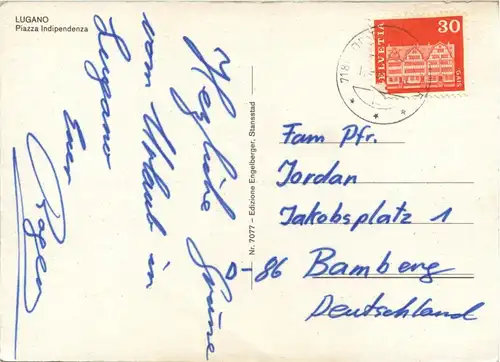 LUGANO
Piazza Indipendenza
Herzliche Grüsse
vom Urlaub in
Lugano
Euer
Nr. 7077 – Edizione Engelberger, Stansstad
HELVETIA
30
GAIS
718
Fam Pfr.
Jordan
Jakobsplatz 1
D-86 Bamberg
Deutschland